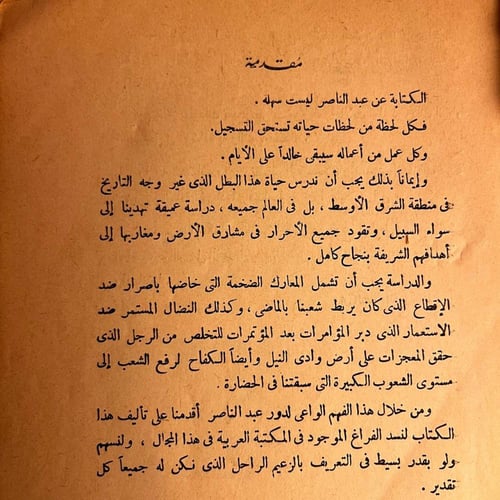 مقدمية
الكتابة عن عبد الناصر ليست سهله .
فكل لحظة من لحظات حياته تستحق التسجيل.
وكل عمل من أعماله سيبقى خالداً على الأيام .
وإيماناً بذلك يجب أن ندرس حياة هذا البطل الذى غير وجه التاريخ
فى منطقة الشرق الأوسط ، بل فى العالم جميعه ، دراسة عميقة تهدينا إلى
سواء السبيل ، وتقود جميع الأحرار فى مشارق الأرض ومغاربها إلى
أهدافهم الشريفة بنجاح كامل .
والدراسة يجب أن تشمل المعارك الضخمة التى خاضها باصرار ضد
الإقطاع الذى كان يربط شعبنا بالماضى ، وكذلك النضال المستمر ضد
الاستعمار الذى دبر المؤامرات بعد المؤتمرات للتخلص من الرجل الذى
حقق المعجزات على أرض وادى النيل وأيضاً الكفاح لرفع الشعب إلى
مستوى الشعوب الكبيرة التى سبقتنا فى الحضارة .
ومن خلال هذا الفهم الواعى لدور عبد الناصر أقدمنا على تأليف هذا
الكتاب لنسد الفراغ الموجود فى المكتبة العربية فى هذا المجال ، ولنسهم
ولو بقدر بسيط فى التعريف بالزعيم الراحل الذى نكن له جميعاً كل
تقدير .